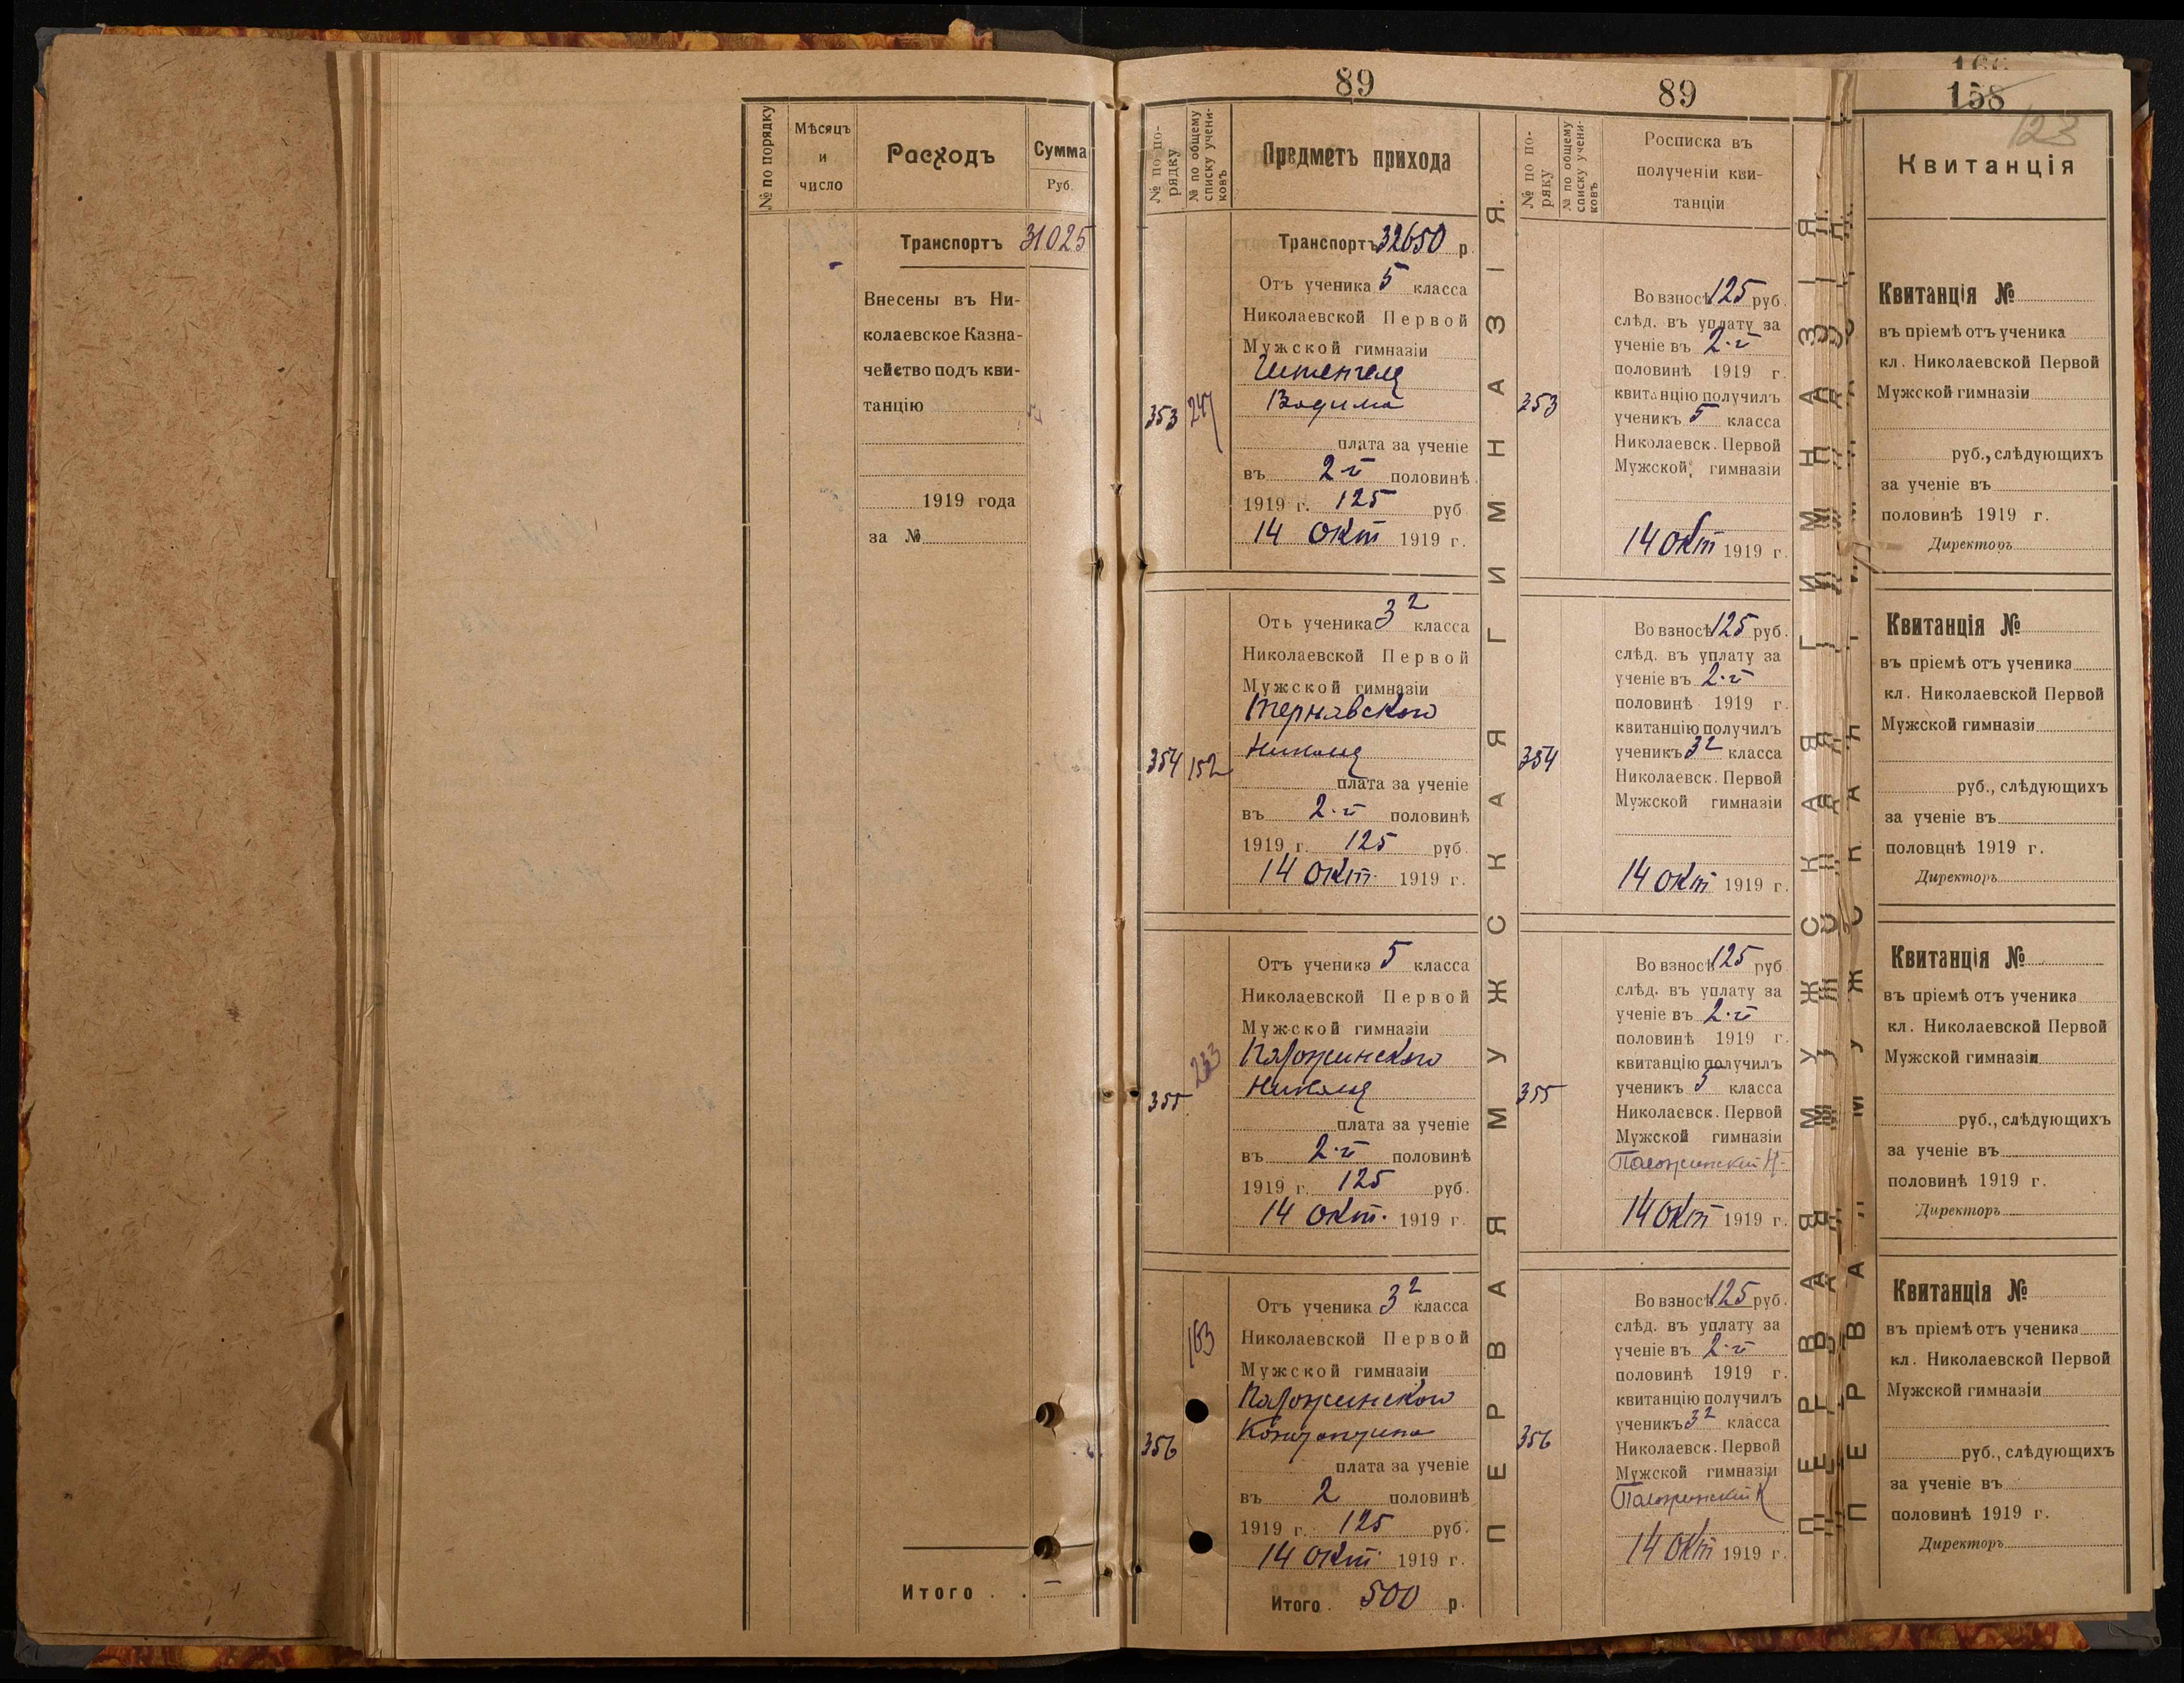 № по порядку
Мѣсяцъ
и
число
Расходъ
Сумма
Руб.
Транспортъ 31025
Внесены въ Ни-
колаевское Казна-
чейство подъ кви-
танцію
1919 года
за №
Итого . . —
89
№ по по-
рядку
№ по общему
списку учени-
ковъ
Предметъ прихода
Транспортъ 32650 р
Отъ ученика 5 класса
Николаевской Первой
Мужской гимназіи
Вадима
353
247
плата за ученіе
въ 2-й половинѣ
1919 г. 125 руб
14 Окт 1919 г.
Отъ ученика 3² класса
Николаевской Первой
Мужской гимназіи
Тернавского
Николая
354 152
плата за ученіе
въ 2-й половинѣ
1919 г. 125 руб.
14 Окт. 1919 г.
Отъ ученика 5 класса
Николаевской Первой
Мужской гимназіи
233 Паложинского
Николая
355
плата за ученіе
въ 2-й половинѣ
1919 г. 125 руб.
14 Окт. 1919 г.
Отъ ученика 3² класса
163 Николаевской Первой
Мужской гимназіи
Паложинского
Константина
356
плата за ученіе
въ 2 половинѣ
1919 г. 125 руб.
14 Окт. 1919 г.
Итого . 500 р.
ПЕРВАЯ МУЖСКАЯ ГИМНАЗІЯ.
89
№ по по-
ряку
№ по общему
списку учени-
ковъ
Росписка въ
полученіи кви-
танціи
Во взносѣ 125 руб.
слѣд. въ уплату за
ученіе въ 2-й
половинѣ 1919 г.
квитанцію получилъ
353
ученикъ 5 класса
Николаевск. Первой
Мужской гимназіи
14 Окт 1919 г.
Во взносѣ 125 руб.
слѣд. въ уплату за
ученіе въ 2-й
половинѣ 1919 г.
квитанцію получилъ
354
ученикъ 3² класса
Николаевск. Первой
Мужской гимназіи
14 Окт 1919 г.
Во взносѣ 125 руб
слѣд. въ уплату за
ученіе въ 2-й
половинѣ 1919 г.
квитанцію получилъ
355
ученикъ 5 класса
Николаевск. Первой
Мужской гимназіи
Паложинский Н.
14 Окт 1919 г.
Во взносѣ 125 руб.
слѣд. въ уплату за
ученіе въ 2-й
половинѣ 1919 г.
квитанцію получилъ
356
ученикъ 3² класса
Николаевск. Первой
Мужской гимназіи
Паложинский К
14 Окт 1919 г.
ПЕРВАЯ МУЖСКАЯ ГИМНАЗІЯ.
158
123
Квитанція
Квитанція №
въ пріемѣ отъ ученика
кл. Николаевской Первой
Мужской гимназіи
руб., слѣдующихъ
за ученіе въ
половинѣ 1919 г.
Директоръ
Квитанція №
въ пріемѣ отъ ученика
кл. Николаевской Первой
Мужской гимназіи
руб., слѣдующихъ
за ученіе въ
половцнѣ 1919 г.
Директоръ
Квитанція №
въ пріемѣ отъ ученика
кл. Николаевской Первой
Мужской гимназіи
руб., слѣдующихъ
за ученіе въ
половинѣ 1919 г.
Директоръ
Квитанція №
въ пріемѣ отъ ученика
кл. Николаевской Первой
Мужской гимназіи
руб., слѣдующихъ
за ученіе въ
половинѣ 1919 г.
Директоръ